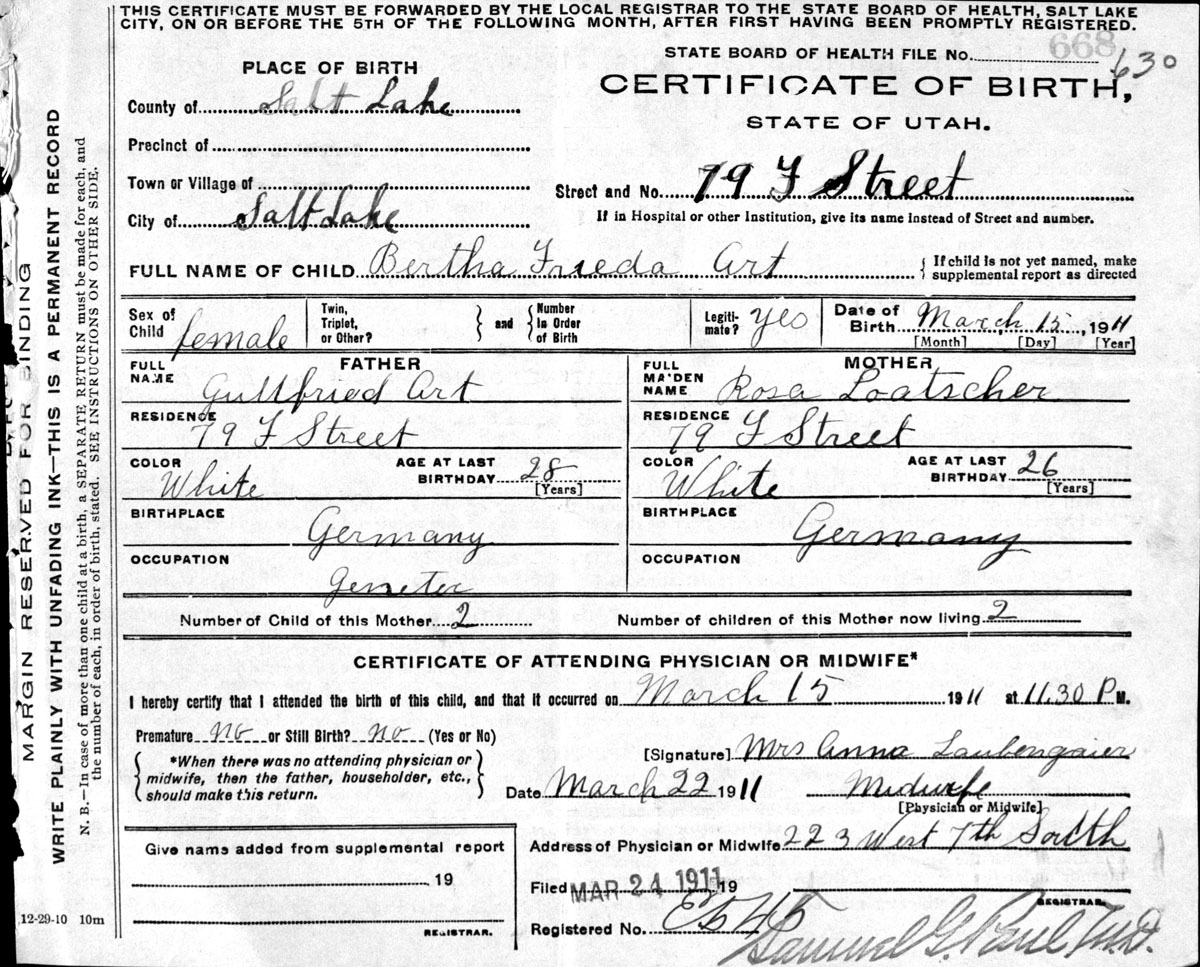 THIS CERTIFICATE MUST BE FORWARDED BY THE LOCAL REGISTRAR TO THE STATE BOARD OF HEALTH, SALT LAKE
CITY, ON OR BEFORE THE 5TH OF THE FOLLOWING MONTH, AFTER FIRST HAVING BEEN PROMPTLY REGISTERED.
STATE BOARD OF HEALTH FILE No. 668 630
PLACE OF BIRTH
CERTIFICATE OF BIRTH,
STATE OF UTAH.
County of Salt Lake
Precinct of
Town or Village of
Street and No. 79 F Street
City of Salt Lake
If in Hospital or other Institution, give its name instead of Street and number.
FULL NAME OF CHILD Bertha Frieda Art
{ If child is not yet named, make
supplemental report as directed
Sex of
Child female
Twin,
Triplet,
or Other?
} and {
Number
In Order
of Birth
Legiti-
mate? yes
Date of
Birth March 15, 1911
[Month] [Day] [Year]
FATHER
FULL
NAME Guttfried Art
MOTHER
FULL
MAIDEN
NAME Rosa Loatscher
RESIDENCE 79 F Street
RESIDENCE 79 F Street
COLOR White
AGE AT LAST
BIRTHDAY 28
[Years]
COLOR White
AGE AT LAST
BIRTHDAY 26
[Years]
BIRTHPLACE Germany
BIRTHPLACE Germany
OCCUPATION
OCCUPATION
Number of Child of this Mother 2
Number of children of this Mother now living 2
CERTIFICATE OF ATTENDING PHYSICIAN OR MIDWIFE*
I hereby certify that I attended the birth of this child, and that it occurred on March 15 1911 at 11.30 P. M.
Premature no or Still Birth? no (Yes or No)
{ *When there was no attending physician or
midwife, then the father, householder, etc.,
should make this return. }
[Signature] Mrs Anna Laubengaier
Date March 22 1911
Midwife
[Physician or Midwife]
Address of Physician or Midwife 223 West 7th South
Give name added from supplemental report
19
REGISTRAR.
Filed MAR 24 1911 19
REGISTRAR.
Registered No. 545
Samuel G. Paul M.D.
12-29-10 10m
MARGIN RESERVED FOR BINDING
WRITE PLAINLY WITH UNFADING INK—THIS IS A PERMANENT RECORD
N. B.—In case of more than one child at a birth, a SEPARATE RETURN must be made for each, and
the number of each, in order of birth, stated. SEE INSTRUCTIONS ON OTHER SIDE.